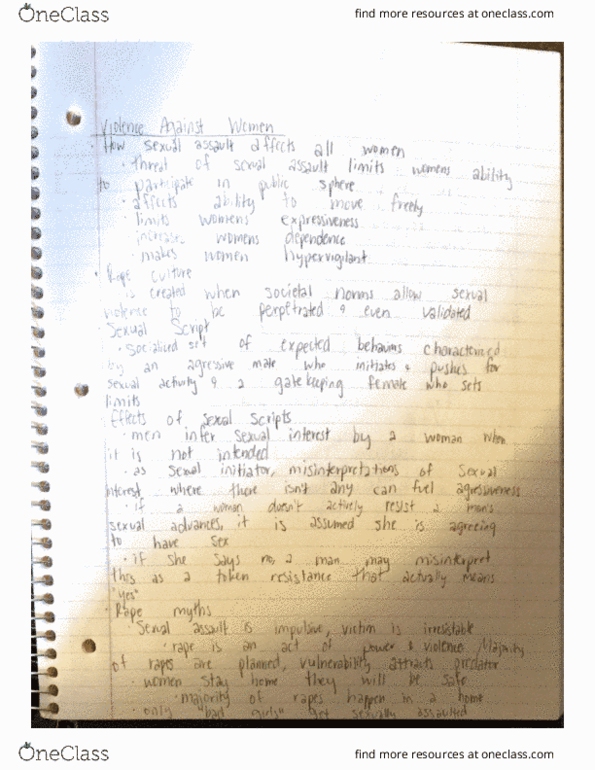 OneClass
find more resources at oneclass.com
Violence Against Women
• How sexual assault affects all women
• threat of sexual assault limits womens ability
to participate in public sphere
• affects ability to move freely
• limits womens expressiveness
increase womens dependence
• makes women hypervigilant
• Rape culture
is created when societal norms allow sexual
violence to be perpetrated & even validated
• Sexual Script
• Socialized set of expected behaviors characterized
by an agressive male who initiates & pushes for
sexual activity & a gatekeeping female who sets
limits
Effects of Sexual Scripts
• men infer sexual interest by a woman when
it is not intended
• as sexual initiator, misinterpretations of sexual
interest where there isn't any can fuel agressiveness
• if a woman doesn't actively resist a man's
sexual advances, it is assumed she is agreeing
to have sex
• if she says no, a man may misinterpret
this as a token resistance that actually means
"yes"
• Rape myths
• Sexual assault is impulsive, victim is irresistable
• rape is an act of power & violence / Majority
of rapes are planned, vulnerability attracts predator
• women stay home they will be safe
• majority of rapes happen in a home
• only "bad girls" get sexually assaulted
OneClass
find more resources at oneclass.com